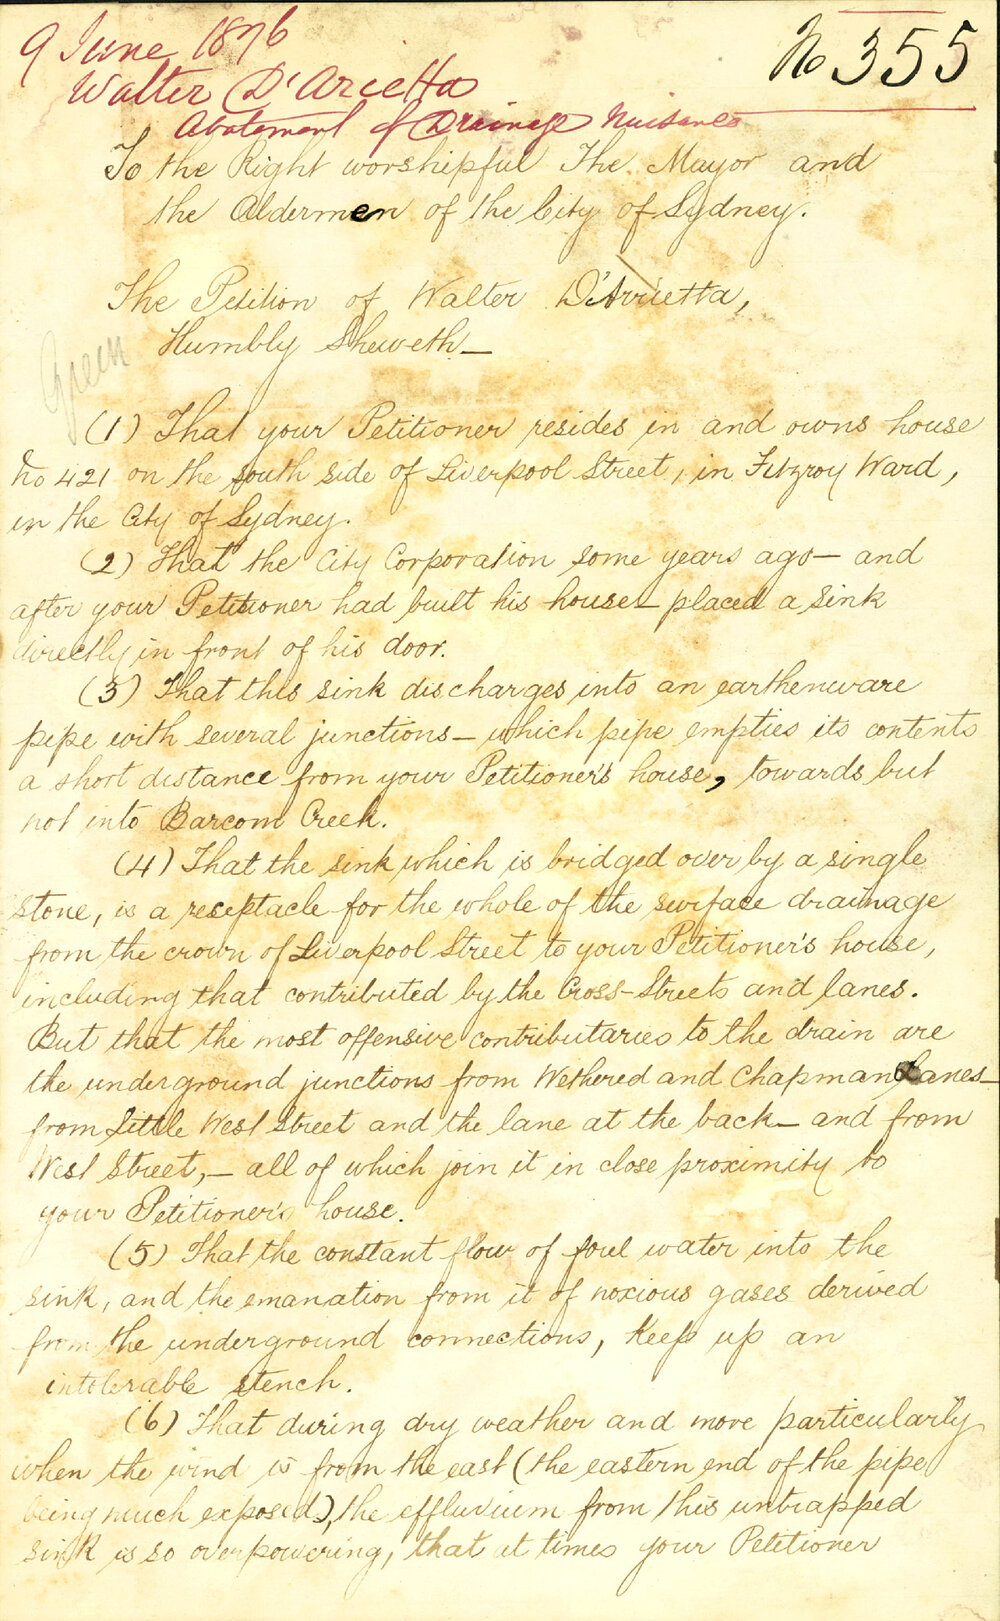 9 June 1876
No 355
Walter D'Arietta
Abatement of Drainage Nuisance
To the Right worshipful The Mayor and
the Aldermen of the City of Sydney.
The Petition of Walter D'Arrietta,
Humbly Sheweth —
Green
(1) That your Petitioner resides in and owns house
No 421 on the south side of Liverpool Street, in Fitzroy Ward,
in the City of Sydney.
(2) That the City Corporation some years ago — and
after your Petitioner had built his house — placed a sink
directly in front of his door.
(3) That this sink discharges into an earthenware
pipe with several junctions — which pipe empties its contents
a short distance from your Petitioner's house, towards but
not into Barcom Creek.
(4) That the sink which is bridged over by a single
stone, is a receptacle for the whole of the surface drainage
from the crown of Liverpool Street to your Petitioner's house,
including that contributed by the Cross-Streets and lanes.
But that the most offensive contributaries to the drain are
the underground junctions from Wethered and Chapman Lanes —
from Little West Street and the lane at the back — and from
West Street, — all of which join it in close proximity to
your Petitioner's house.
(5) That the constant flow of foul water into the
sink, and the emanation from it of noxious gases derived
from the underground connections, keeps up an
intolerable stench.
(6) That during dry weather and more particularly
when the wind is from the east (the eastern end of the pipe
being much exposed), the effluvium from this untrapped
sink is so overpowering, that at times your Petitioner